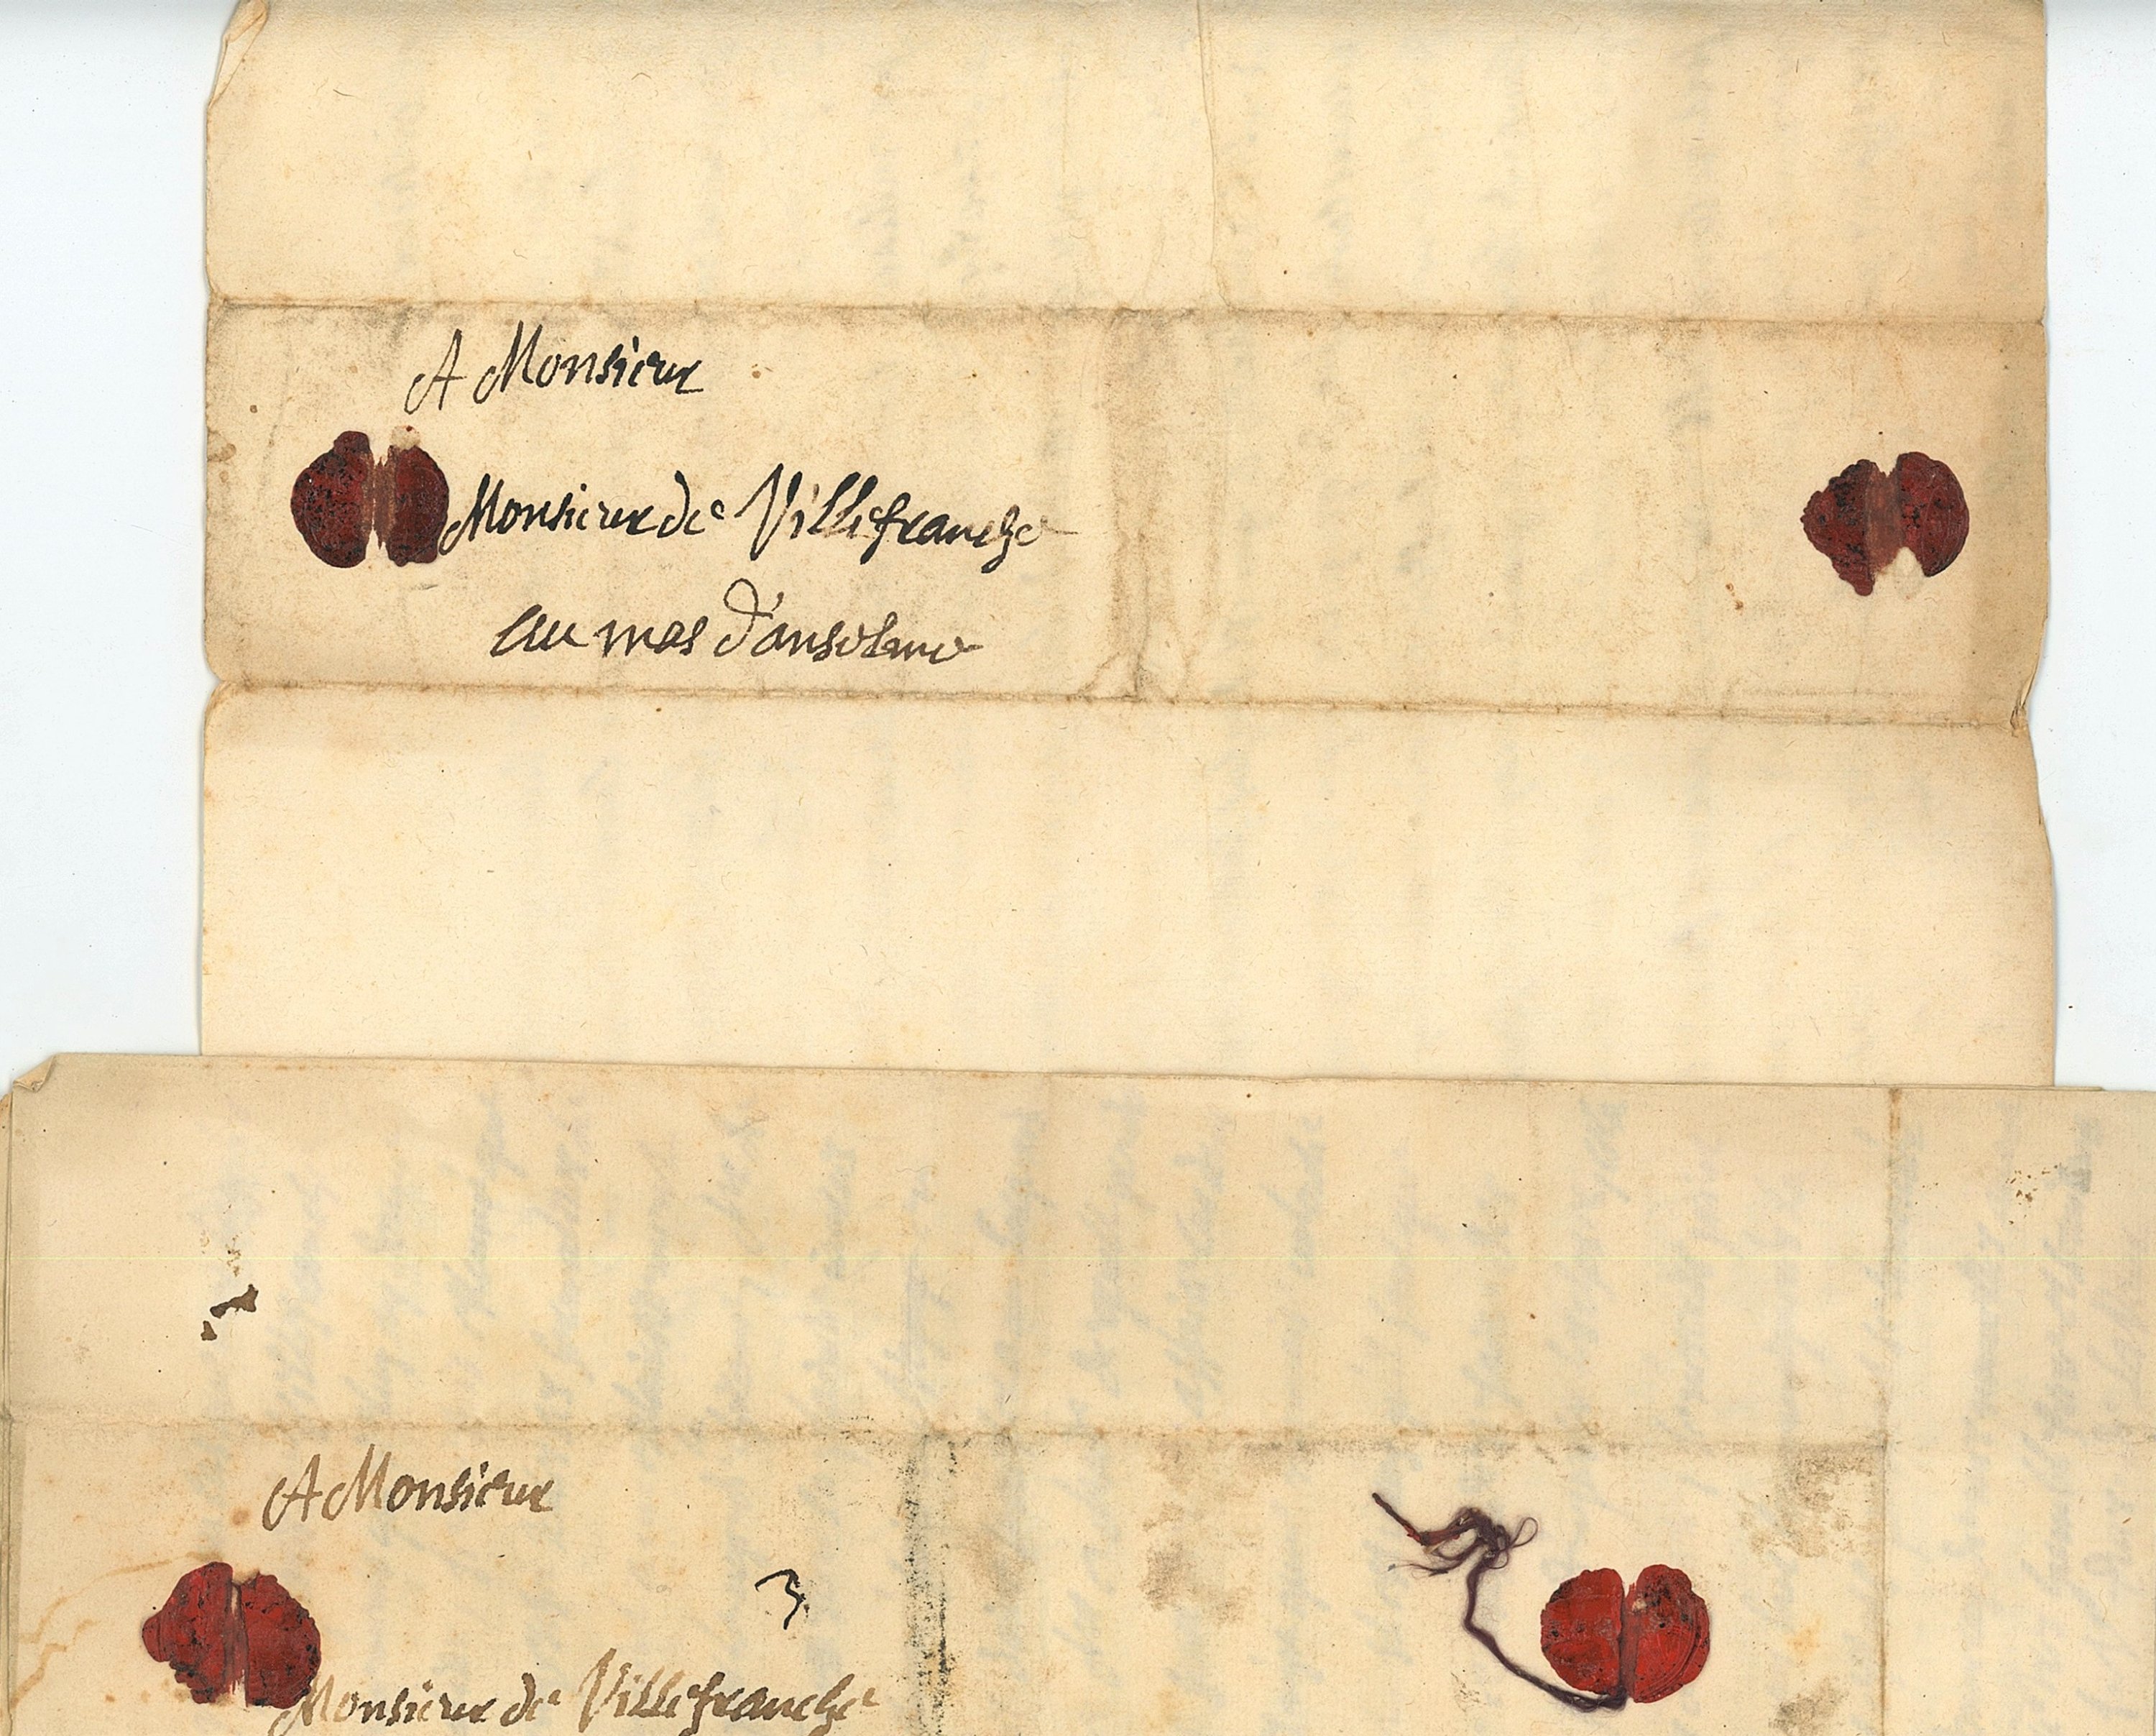 A Monsieur
Monsieur de Villefranche
au mas d'anselme
A Monsieur
3
Monsieur de Villefranche